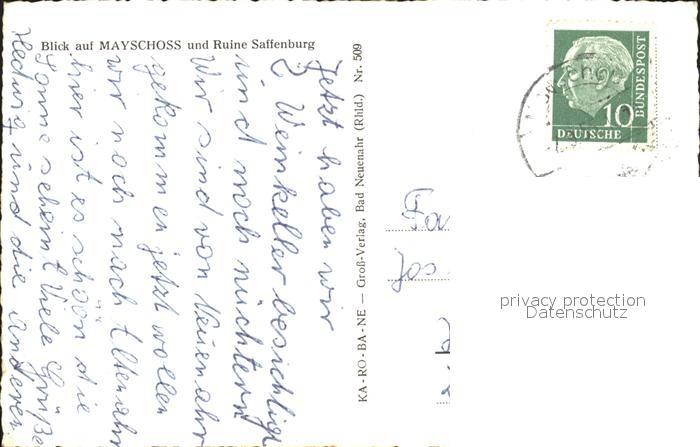 Blick auf MAYSCHOSS und Ruine Saffenburg
Jetzt haben wir
2 Weinkeller besichtigt
und noch nüchtern
Wir sind von Neuenahr
gekommen jetzt wollen
wir noch nach Altenahr
hier ist es schön die
Sonne scheint Viele Grüße
Hedwig und die anderen
KA-RO-BA-NE — Groß-Verlag, Bad Neuenahr (Rhld.) Nr. 509
Fa
Jos
10
DEUTSCHE
BUNDESPOST
privacy protection
Datenschutz